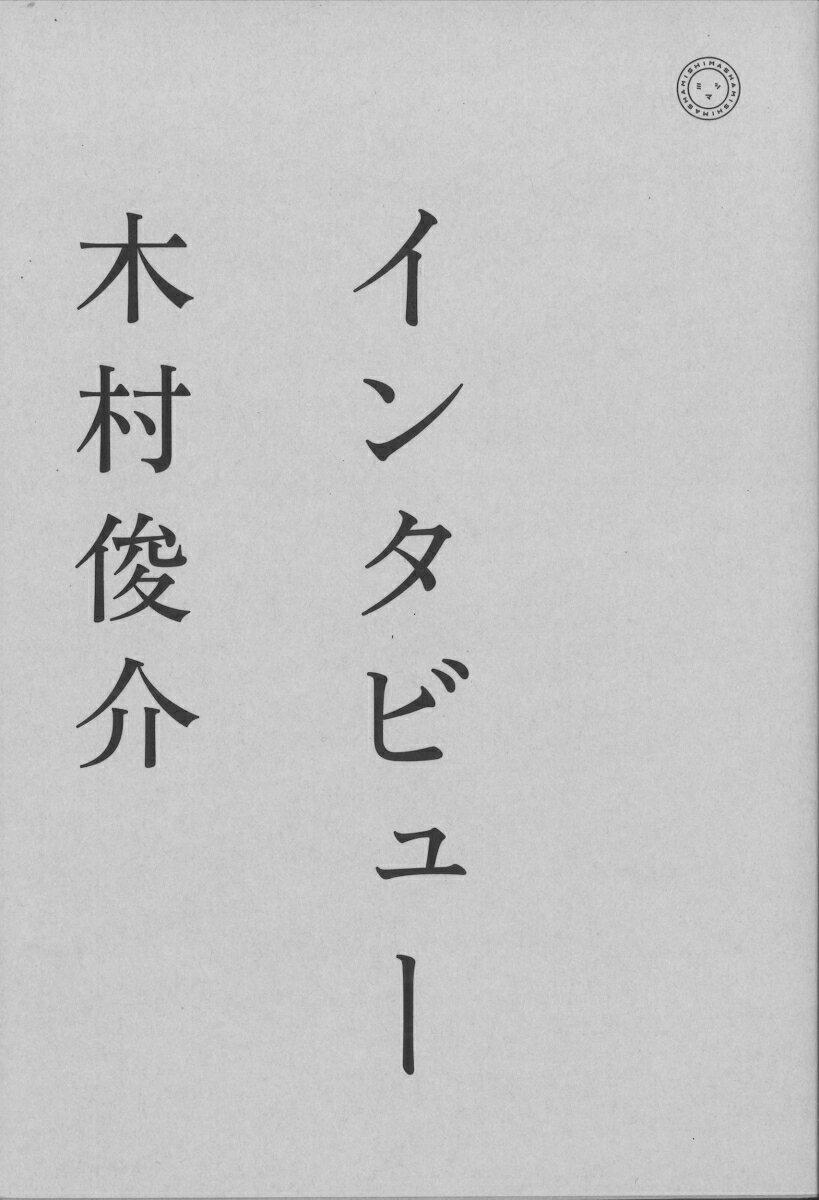 MISHIMASHAMISHIMASHAMISHIMASHA
ミシマ
インタビュー
木村俊介